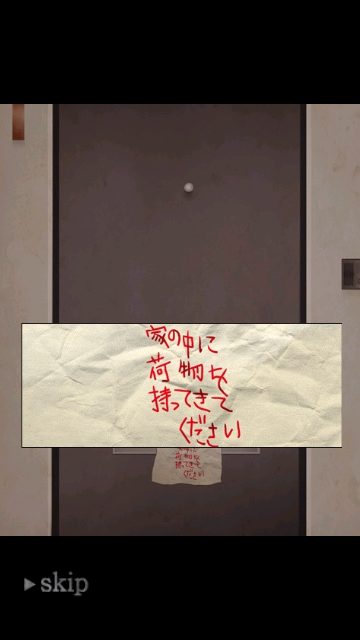 家の中に
荷物を
持ってきて
ください
家の中に
荷物を
持ってきて
ください
skip